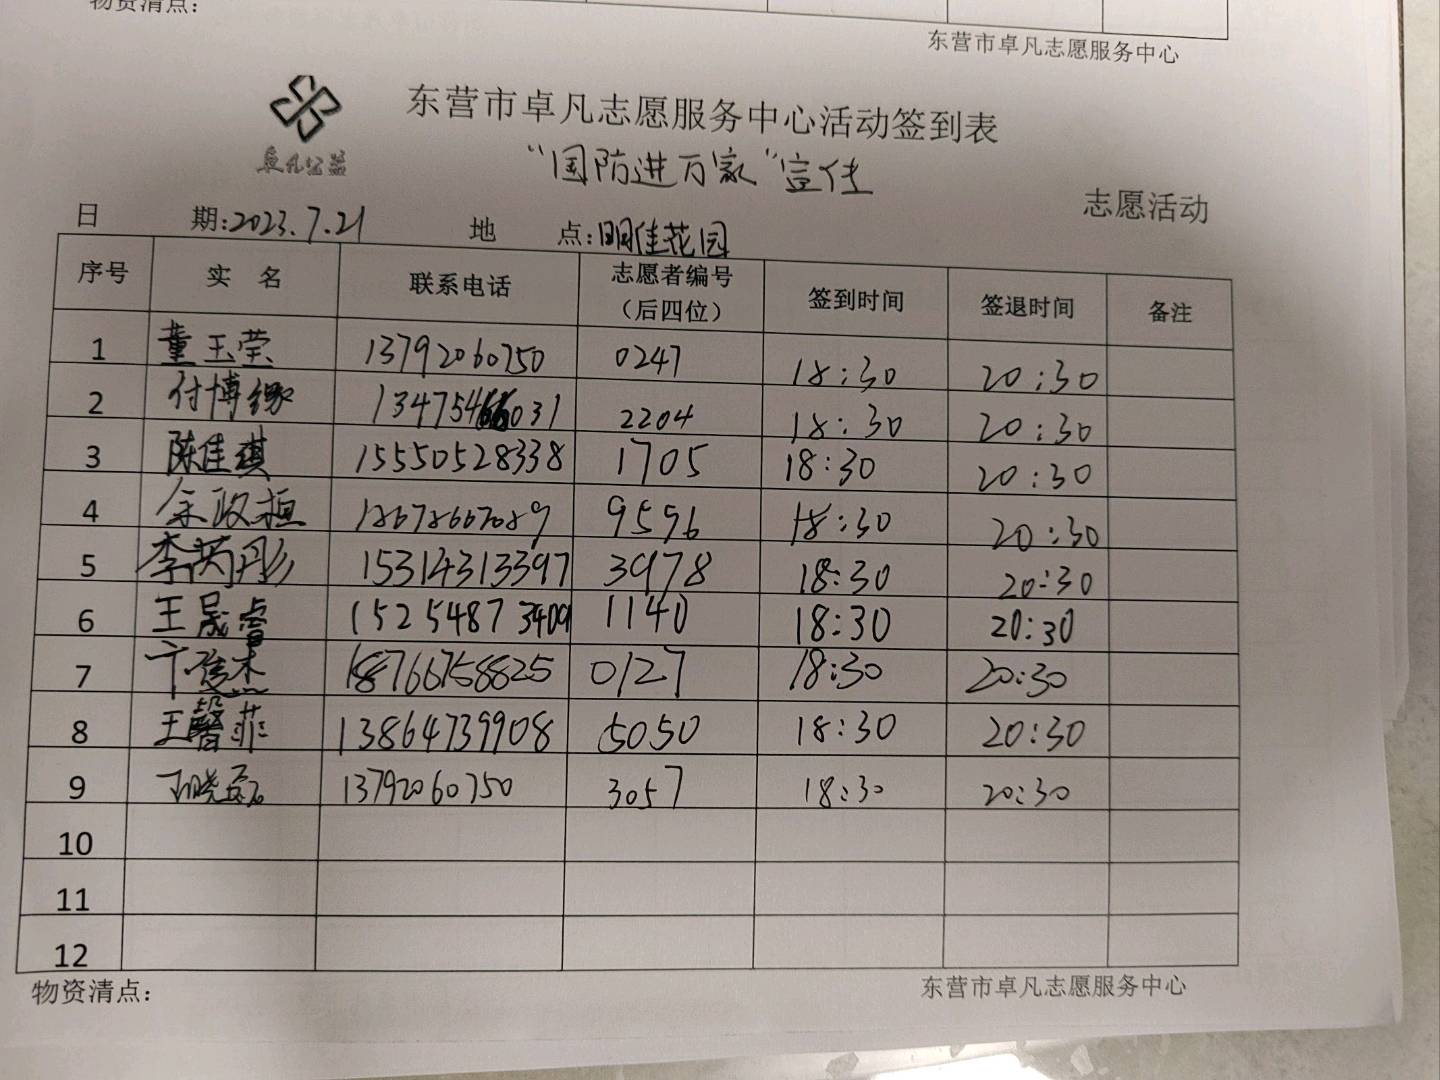 物资清点：
东营市卓凡志愿服务中心
东营市卓凡志愿服务中心活动签到表
卓凡公益
“国防进万家”宣传
志愿活动
日 期:2023.7.21 地 点:明佳花园
序号 实 名 联系电话 志愿者编号（后四位） 签到时间 签退时间 备注
1 董玉莹 13792060750 0247 18:30 20:30
2 付博缘 13475466031 2204 18:30 20:30
3 陈佳琪 15550528338 1705 18:30 20:30
4 余政桓 18678667089 9596 18:30 20:30
5 李芮彤 15314313397 3978 18:30 20:30
6 王晟睿 15254873409 1140 18:30 20:30
7 18766758825 0127 18:30 20:30
8 王馨菲 13864739908 5050 18:30 20:30
9 13792060750 3057 18:30 20:30
10
11
12
物资清点：
东营市卓凡志愿服务中心